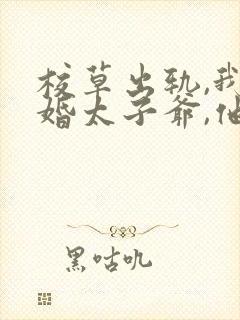 校草出轨,我
婚太子爷,他
黑咕叽